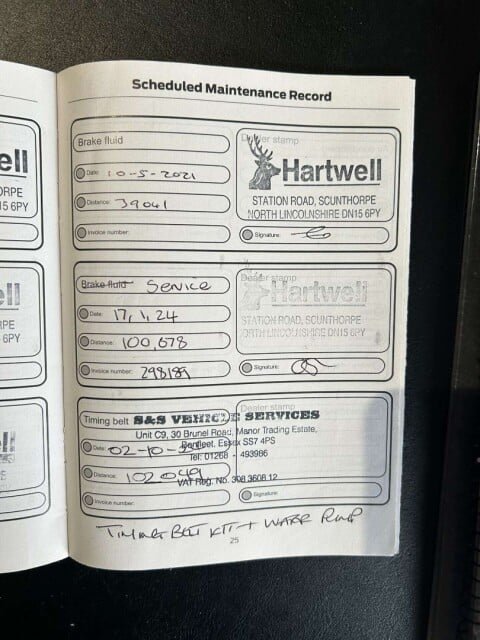 Scheduled Maintenance Record
Brake fluid
Dealer stamp
Date: 10-5-2021
Hartwell
Distance: 39041
STATION ROAD, SCUNTHORPE
NORTH LINCOLNSHIRE DN15 6PY
Invoice number:
Signature:
ell
RPE
15 6PY
Brake fluid Service
Dealer stamp
Date: 17,1,24
Hartwell
Distance: 100,678
STATION ROAD, SCUNTHORPE
NORTH LINCOLNSHIRE DN15 6PY
Invoice number: 298189
Signature:
ell
RPE
5 6PY
Timing belt
Dealer stamp
S&S VEHICLE SERVICES
Unit C9, 30 Brunel Road, Manor Trading Estate,
Date: 02-10-
Benfleet, Essex SS7 4PS
Tel: 01268 - 493986
Distance: 102049
VAT Reg. No. 308 3608 12
Invoice number:
Signature:
TIMING BELT KIT + WATER PUMP
25